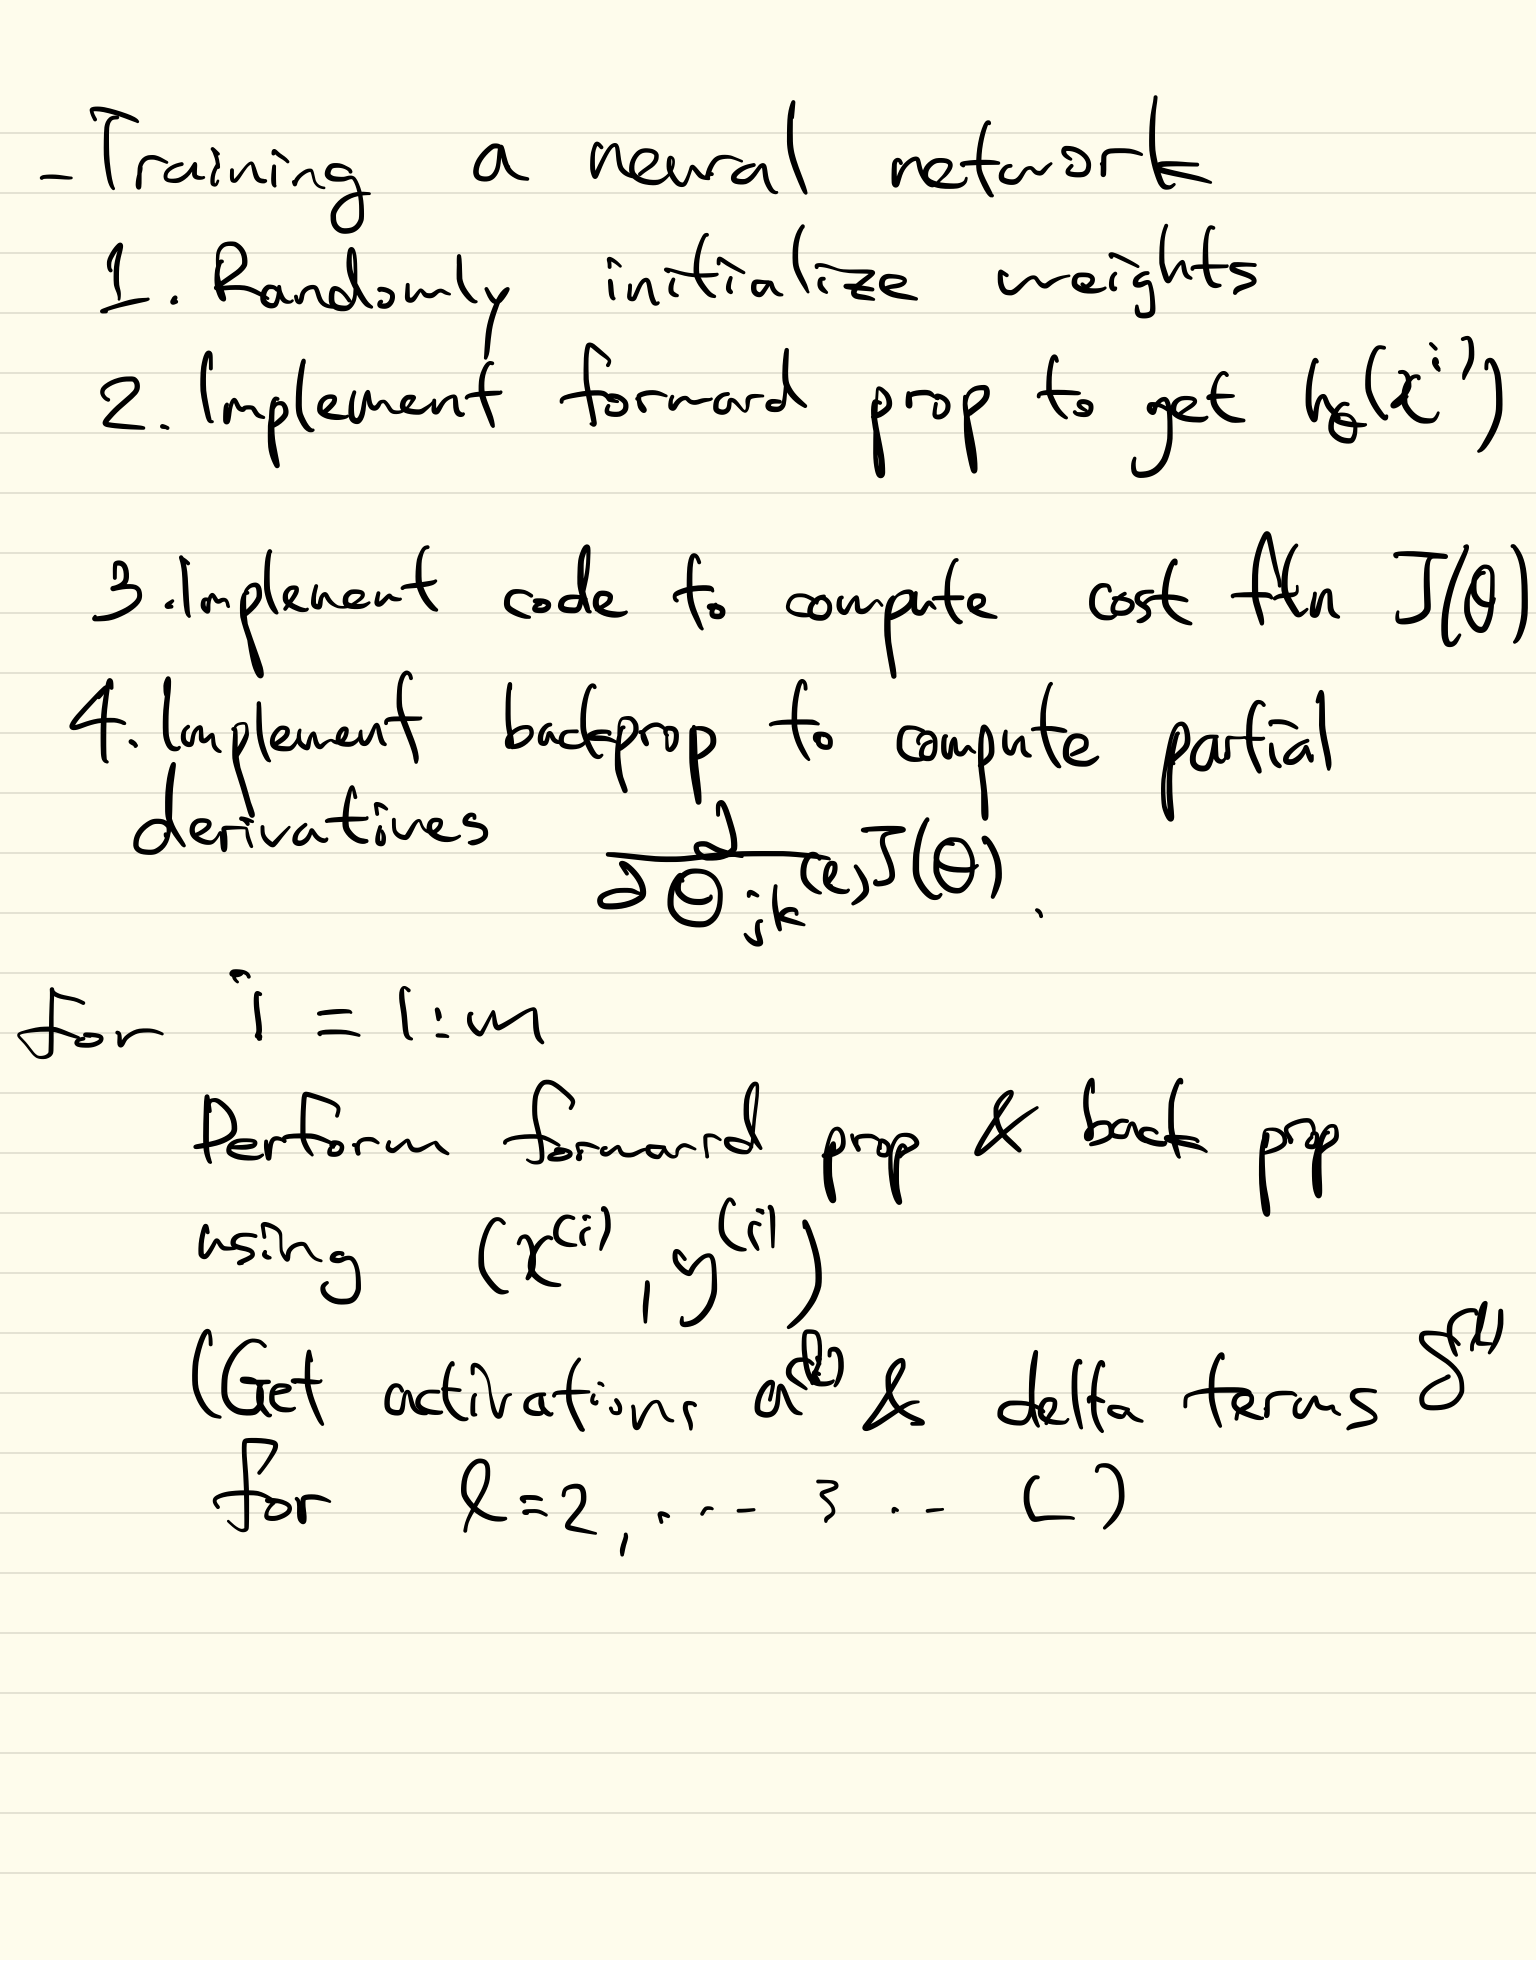 - Training a neural network
1. Randomly initialize weights
2. Implement forward prop to get hθ(x^i))
3. Implement code to compute cost ftn J(θ)
4. Implement backprop to compute partial
derivatives ∂/∂Θjk^(l) J(Θ).
for i = 1:m
Perform forward prop & back prop
using (x^(i), y^(i))
(Get activations a^(l) & delta terms δ^(l)
for l=2, ... 3 .. L)